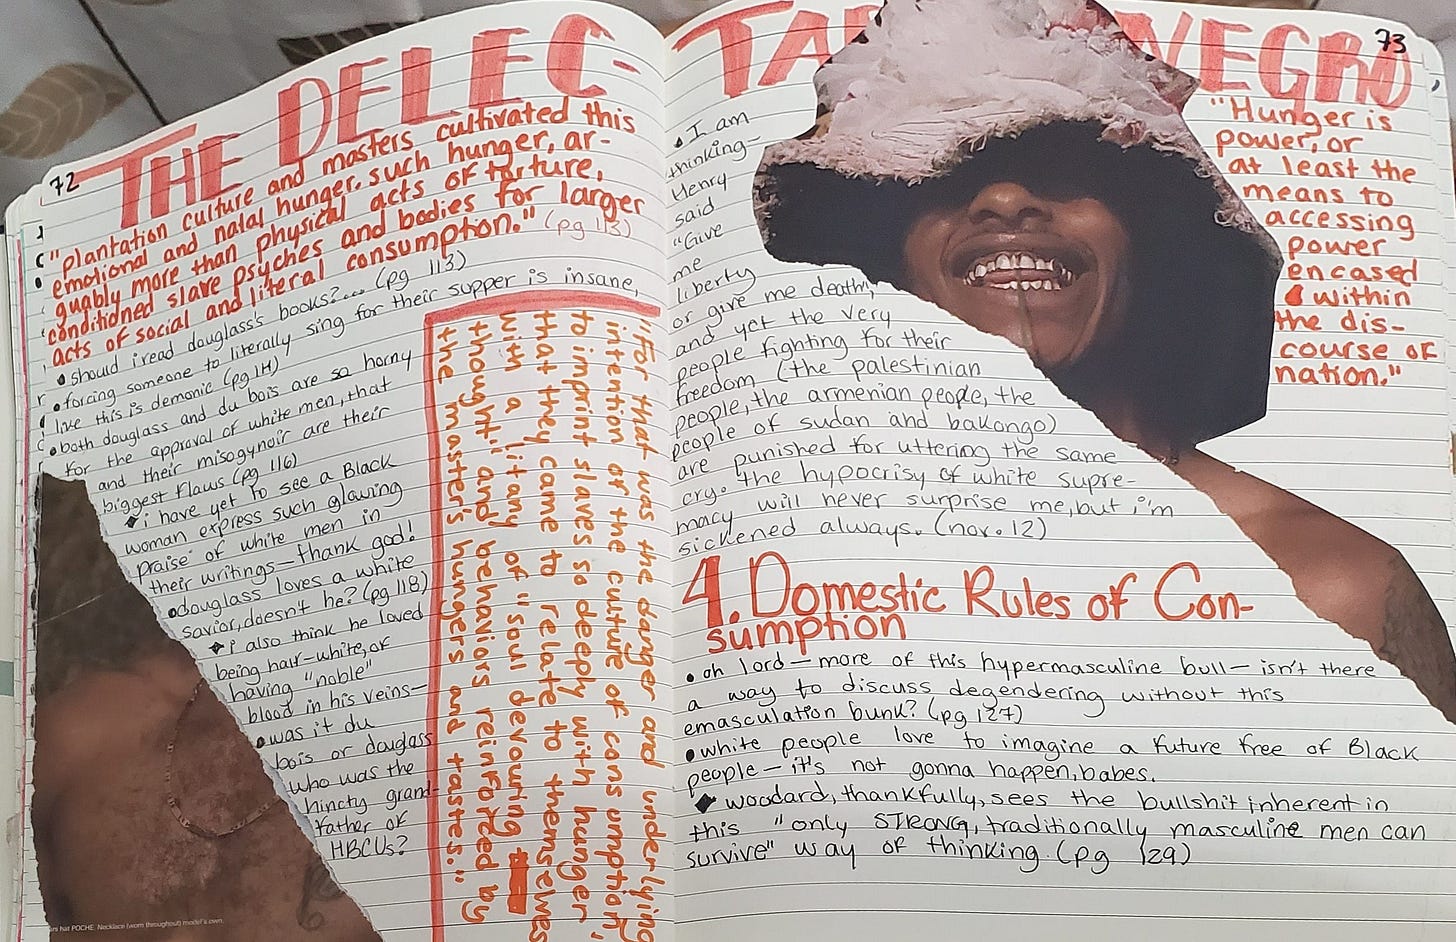 72
THE DELEC-
"plantation culture and masters cultivated this
emotional and natal hunger. such hunger, ar-
guably more than physical acts of torture,
conditioned slave psyches and bodies for larger
acts of social and literal consumption." (pg 113)
• should i read douglass's books?... (pg 113)
• forcing someone to literally sing for their supper is insane,
like this is demonic (pg 114)
• both douglass and du bois are so horny
for the approval of white men, that
and their misogynoir are their
biggest flaws (pg 116)
◆ i have yet to see a Black
woman express such glowing
praise of white men in
their writings — thank god!
• douglass loves a white
savior, doesn't he? (pg 118)
◆ i also think he loved
being half-white, of
having "noble"
blood in his veins—
• was it du
bois or douglass
who was the
hincty grand-
father of
HBCUs?
"For that was the danger and underlying
intention of the culture of consumption,
to imprint slaves so deeply with hunger
that they came to relate to themselves
with a litany of "soul devouring
thoughts and behaviors reinforced by
the master's hungers and tastes."
hat POCHE. Necklace (worn throughout) model's own.
73
TA NEGRO
• I am
thinking—
Henry
said
"Give
me
liberty
or give me death,"
and yet the very
people fighting for their
freedom (the palestinian
people, the armenian people, the
people of sudan and bakongo)
are punished for uttering the same
cry. the hypocrisy of white supre-
macy will never surprise me, but i'm
sickened always. (nov. 12)
"Hunger is
power, or
at least the
means to
accessing
power
encased
within
the dis-
course of
nation."
4. Domestic Rules of Con-
sumption
• oh lord — more of this hypermasculine bull — isn't there
a way to discuss degendering without this
emasculation bunk? (pg 127)
• white people love to imagine a future free of Black
people — it's not gonna happen, babes.
◆ woodard, thankfully, sees the bullshit inherent in
this "only STRONG, traditionally masculine men can
survive" way of thinking. (pg 129)